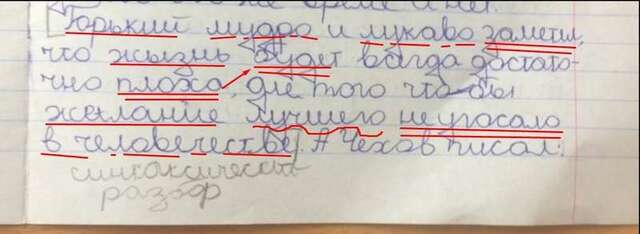 Горький мудро и лукаво заметил,
что жызнь будет всегда достато-
чно плоха, для того что бы
желание лучшего неугосало
в человечестве, А Чехов писал:
синтаксический
разбор